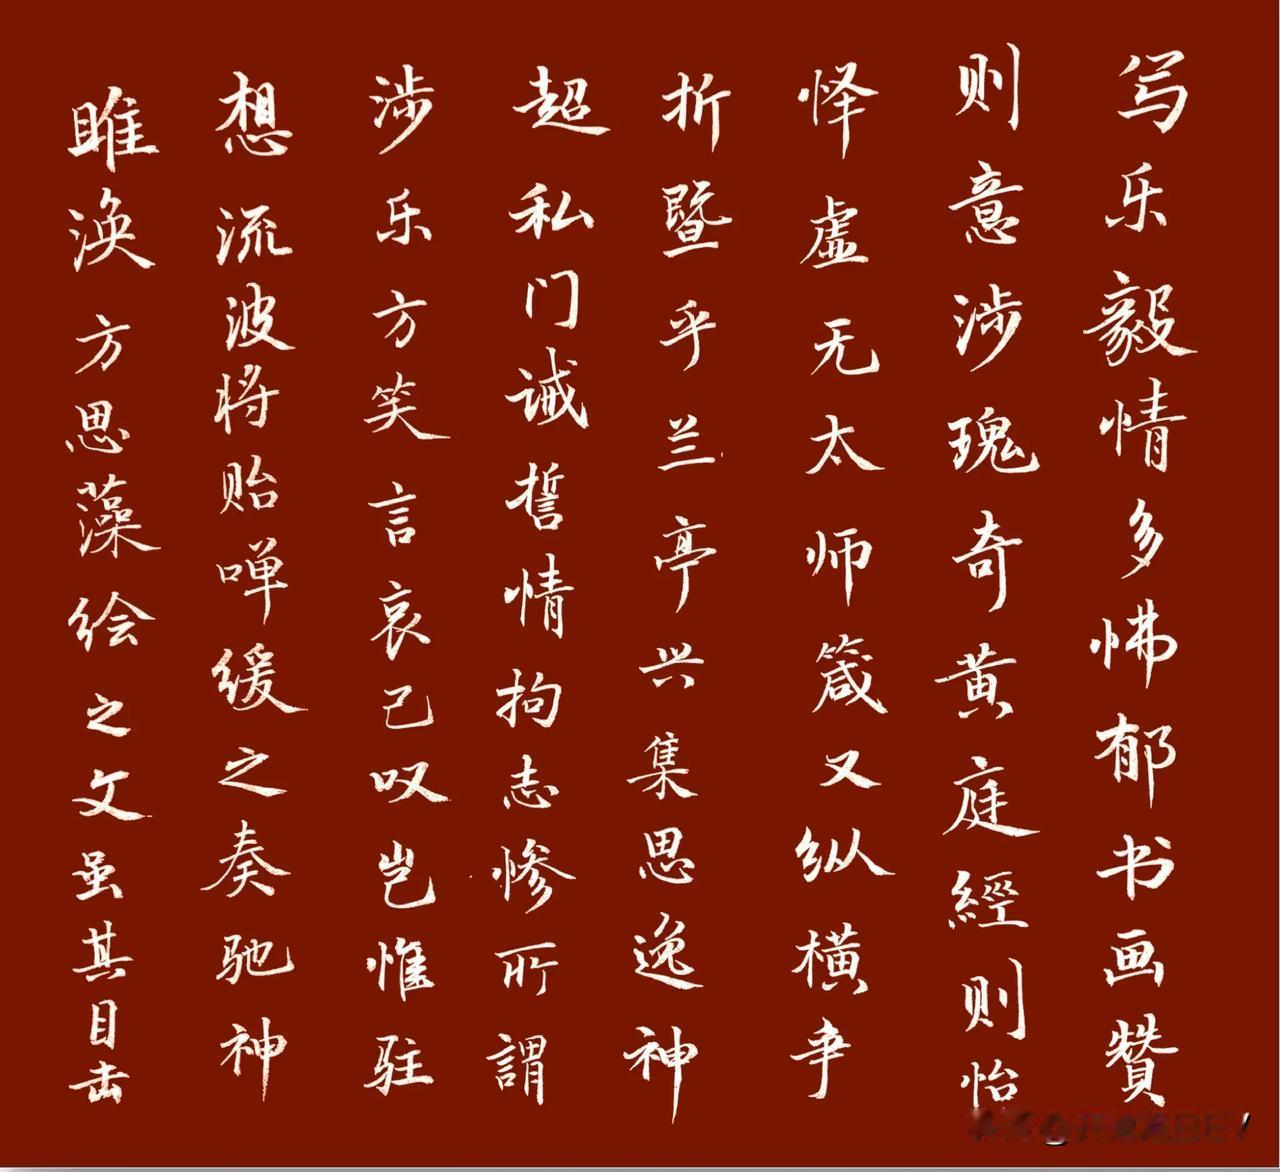 写乐毅情多怫郁书画赞
则意涉瑰奇黄庭經则怡
怿虚无太师箴又纵横争
折暨乎兰亭兴集思逸神
超私门诫誓情拘志惨所謂
涉乐方笑言哀己叹岂惟驻
想流波将贻啴缓之奏驰神
睢涣方思藻绘之文虽其目击